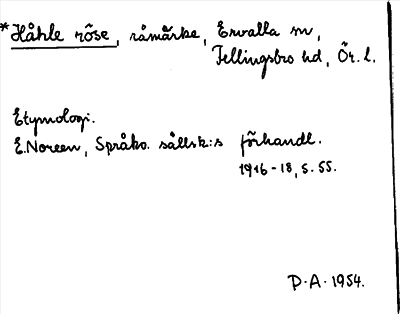 *Håhle röse, råmärke, Ervalla sn,
Fellingsbro hd, Ör. l.
Etymologi.
E. Noreen, Språkv. sällsk:s förhandl.
1916-18, s. 55.
P.A. 1954.